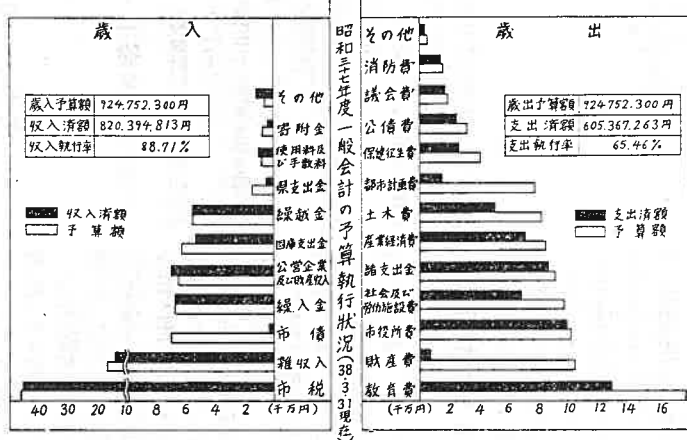 歳入
歳入予算額 924,752,300円
収入済額 820,394,813円
収入執行率 88.71%
収入済額
予算額
その他
寄附金
使用料及
び手数料
県支出金
繰越金
国庫支出金
公営企業
及び財産収入
繰入金
市債
雑収入
市税
40 30 20 10 6 4 2 (千万円)
昭和三十七年度一般会計の予算執行状況(38.3.31現在)
歳出
歳出予算額 924,752,300円
支出済額 605,367,263円
支出執行率 65.46%
支出済額
予算額
その他
消防費
議会費
公債費
保健衛生費
都市計画費
土木費
産業経済費
諸支出金
社会及び
労働施設費
市役所費
財産費
教育費
(千万円) 2 4 6 8 10 12 14 16